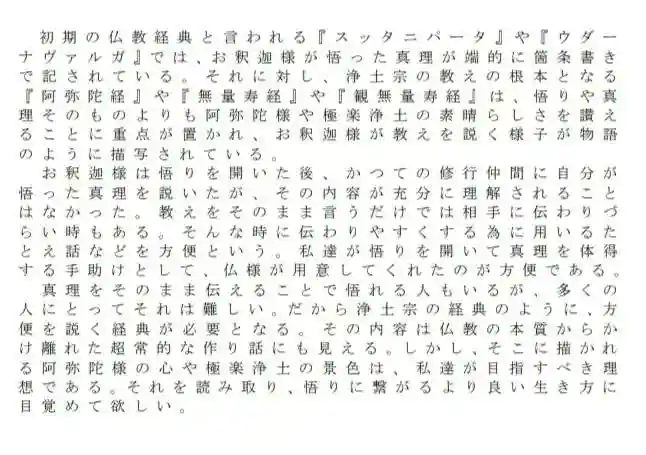 初期の仏教経典と言われる『スッタニパータ』や『ウダー
ナヴァルガ』では、お釈迦様が悟った真理が端的に箇条書き
で記されている。それに対し、浄土宗の教えの根本となる
『阿弥陀経』や『無量寿経』や『観無量寿経』は、悟りや真
理そのものよりも阿弥陀様や極楽浄土の素晴らしさを讃え
ることに重点が置かれ、お釈迦様が教えを説く様子が物語
のように描写されている。
お釈迦様は悟りを開いた後、かつての修行仲間に自分が
悟った真理を説いたが、その内容が充分に理解されること
はなかった。教えをそのまま言うだけでは相手に伝わりづ
らい時もある。そんな時に伝わりやすくする為に用いるた
とえ話などを方便という。私達が悟りを開いて真理を体得
する手助けとして、仏様が用意してくれたのが方便である。
真理をそのまま伝えることで悟れる人もいるが、多くの
人にとってそれは難しい。だから浄土宗の経典のように、方
便を説く経典が必要となる。その内容は仏教の本質からか
け離れた超常的な作り話にも見える。しかし、そこに描かれ
る阿弥陀様の心や極楽浄土の景色は、私達が目指すべき理
想である。それを読み取り、悟りに繋がるより良い生き方に
目覚めて欲しい。